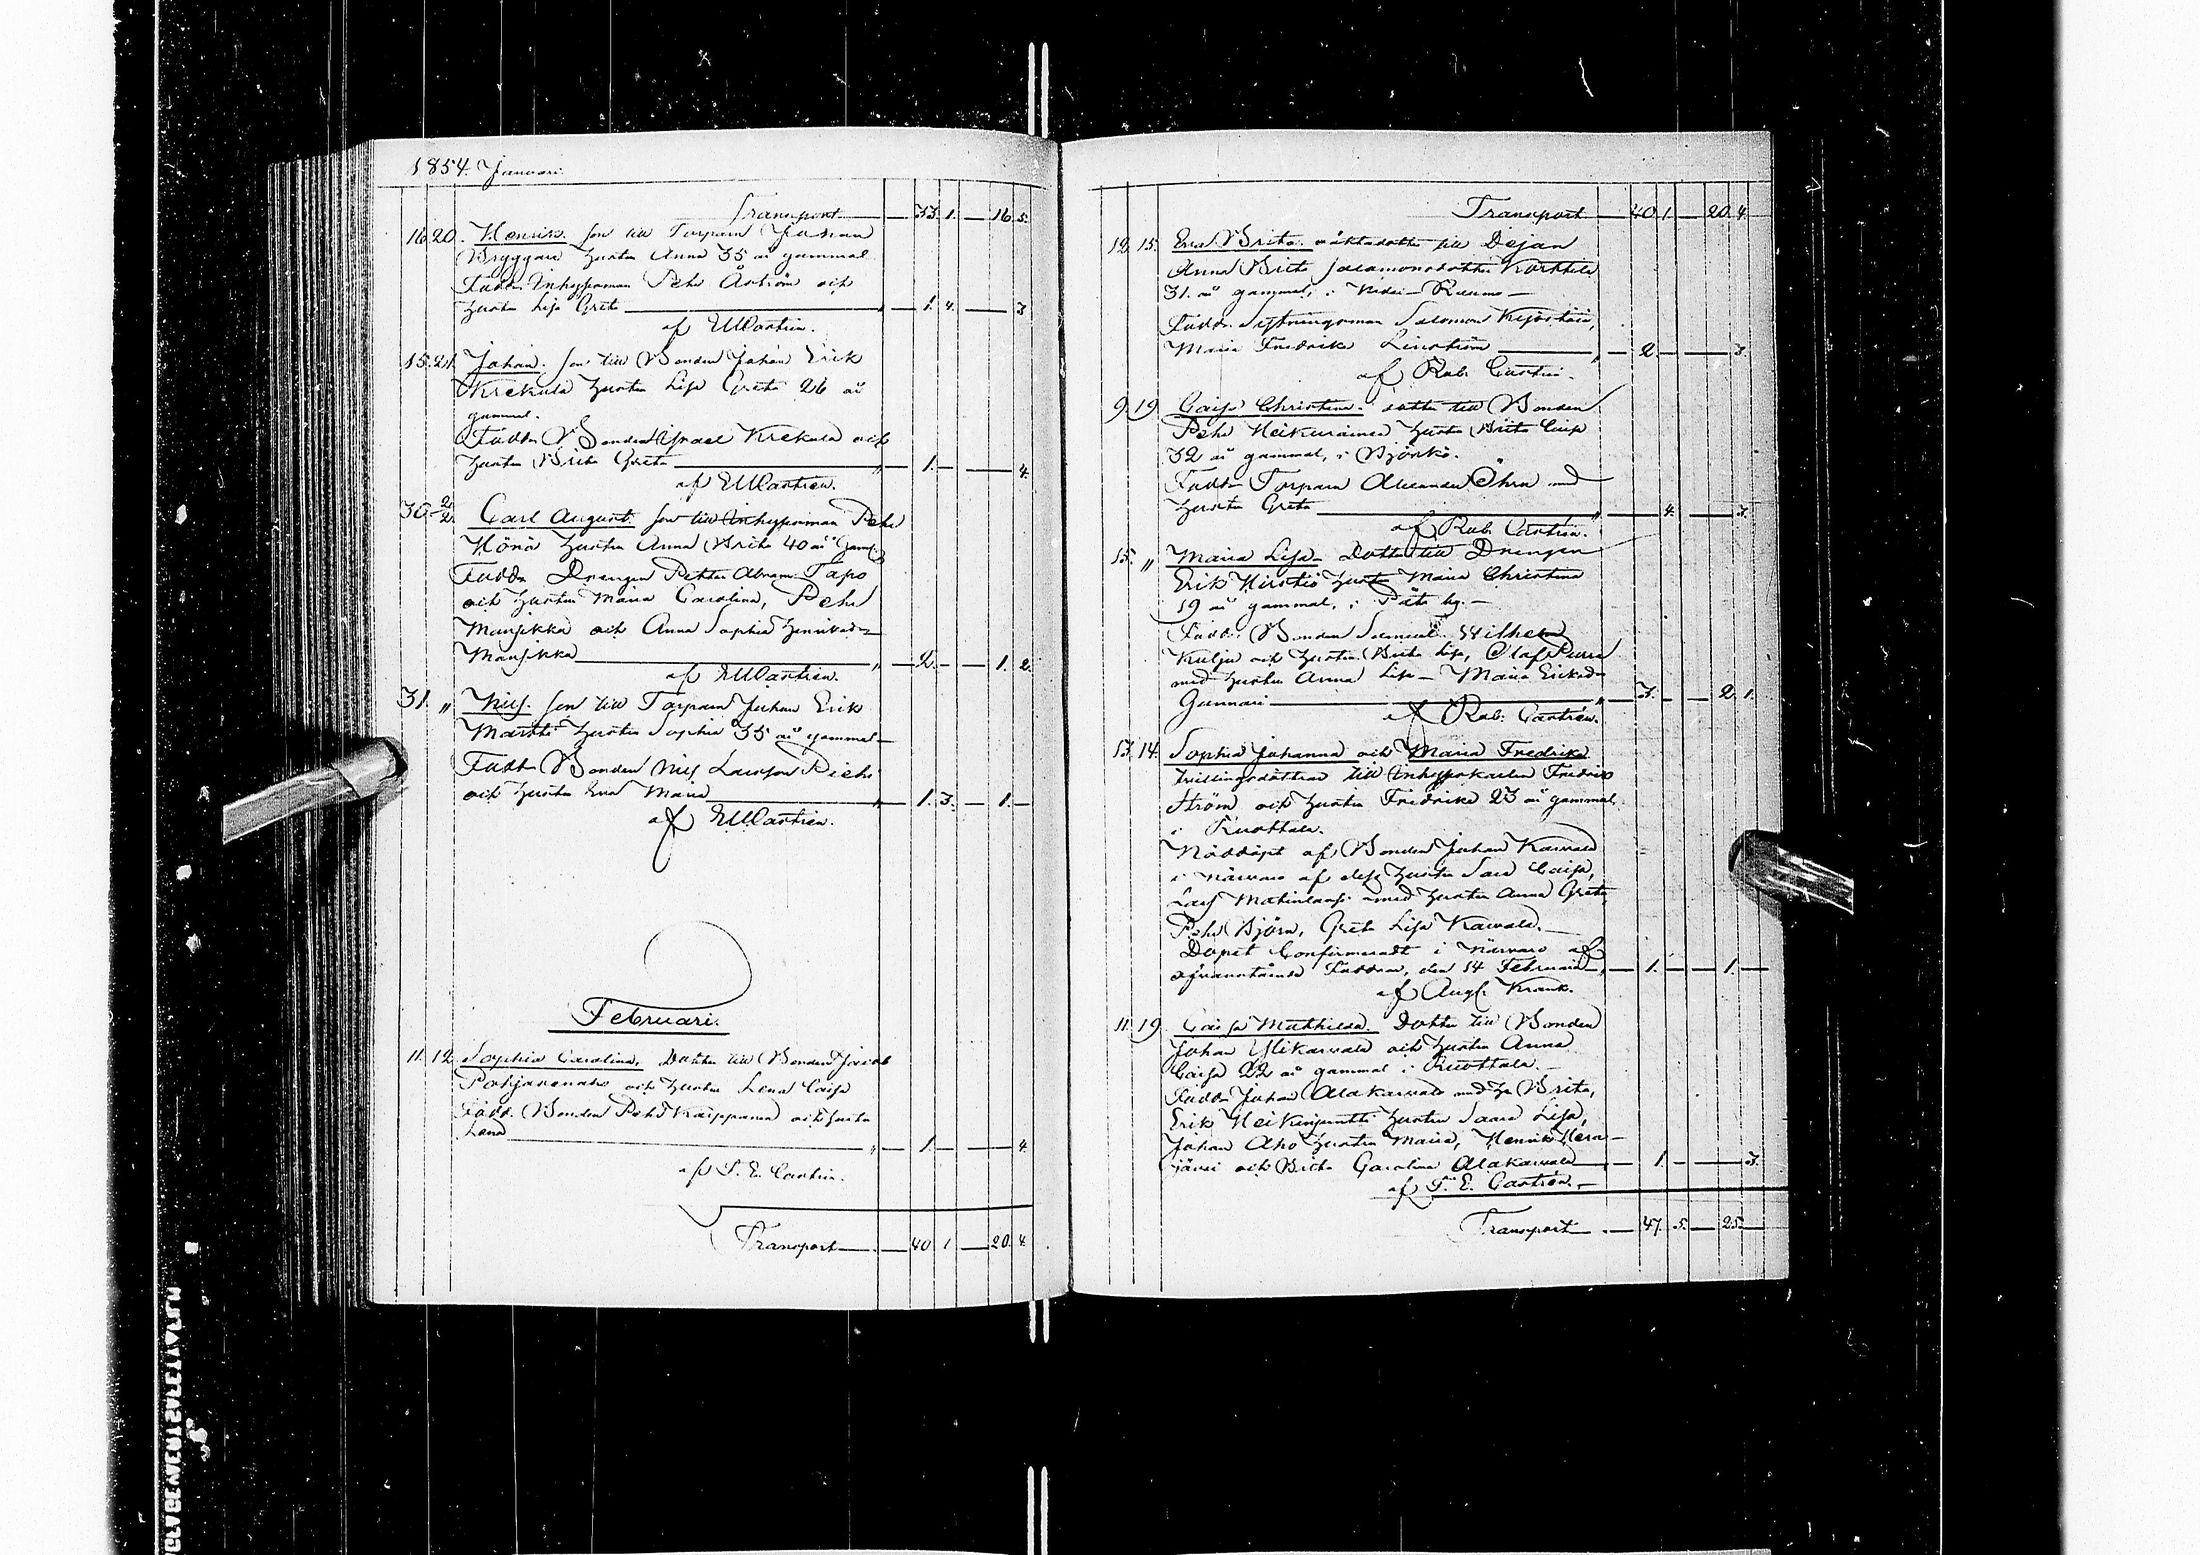 1854. Januari.
Transport 33. 1. 16. 5.
16. 20. Henrik. son till Torparn Johan
Bryggare hustru Anna 35 år gammal
Fadd. Inhysesman Pehr Åström och
hustru Lisa Greta 1. 4. 3
af EM Castrén.
15. 21. Johan. son till Bonden Johan Erik
Krekula hustru Lisa Greta 26 år
gammal.
Faddr Bonden Israel Krekula och
hustru Brita Greta 1. 4.
af EM Castrén.
30. 2/2. Carl August. son till Inhysesman Pehr
hustru Anna Brita 40 år gaml.
Faddr Drengen Petter Abram Tapo
och hustru Maria Carolina, Pehr
Mansikka och Anna Sophia Henriksdr
Mansikka 2. 1. 2.
af EM Castrén.
31. " Nils. son till Torparn Johan Erik
Martti hustru Sophia 35 år gammal
Faddr Bonden Nils Larsson
och hustru Eva Maria 1. 3. 1.
af EM Castrén.
Februari.
11. 12. Sophia Carolina. Dotter till Bonden Jacob
och hustru Lena Caisa
Fadd. Bonden Pehr Kaippainen och hustru
Lena 1. 4.
af S. E. Castrén.
Transport 40 1 20. 4.
Transport 40 1. 20. 4.
12. 15. Eva Brita. oäkta dotter till Dejan
Anna Brita Salamonsdotter Korkkila
31. år gammal, i
Faddr. Sytningsman Salomon
Maria Fredrika Linström 2. 3.
af Rob. Castrén.
9. 19. Caisa Christina. dotter till Bonden
Pehr Heikurainen hustru Brita Caisa
32 år gammal, i Björkö.
Faddr Torparn Alexander Öhrn med
hustru Greta 4. 3.
af Rob. Castrén.
15. " Maria Lisa. Dotter till Drengen
Erik hustru Maria Christina
19 år gammal, i
Faddr. Bonden Samuel Wilhelm
Kulju och hustru Brita Lisa, Olaf
med hustru Anna Lisa – Maria Ericsdr
Gunnari 3. 2. 1.
af Rob. Castrén.
13. 14. Sophia Johanna och Maria Fredrika
tvillingsdöttrar till Inhyseskarlen Fredric
Ström och hustru Fredrika 23 år gammal,
i Ruottala.
Nöddöpt af Bonden Johan Karvala
i närvaro af dess hustru Sara Caisa,
Lars Matinlassi med hustru Anna Greta
Pehr Björn, Greta Lisa Karvala.
Dopet Confirmeradt i närvaro af
ofvanstående Faddrar, den 14 Februari 1. 1.
af Aug. Krank.
11. 19. Caisa Mathilda. Dotter till Bonden
Johan Ylikarvala och hustru Anna
Caisa 22 år gammal i Ruottala.
Faddr Johan Alakarvala med hu Brita,
Erik Heikinpuntti hustru Saara Lisa,
Johan Aho hustru Maria, Henrik Hera-
järvi och Brita Carolina Alakarvala 1. 3.
af S. E. Castrén.
Transport 47. 5. 25.